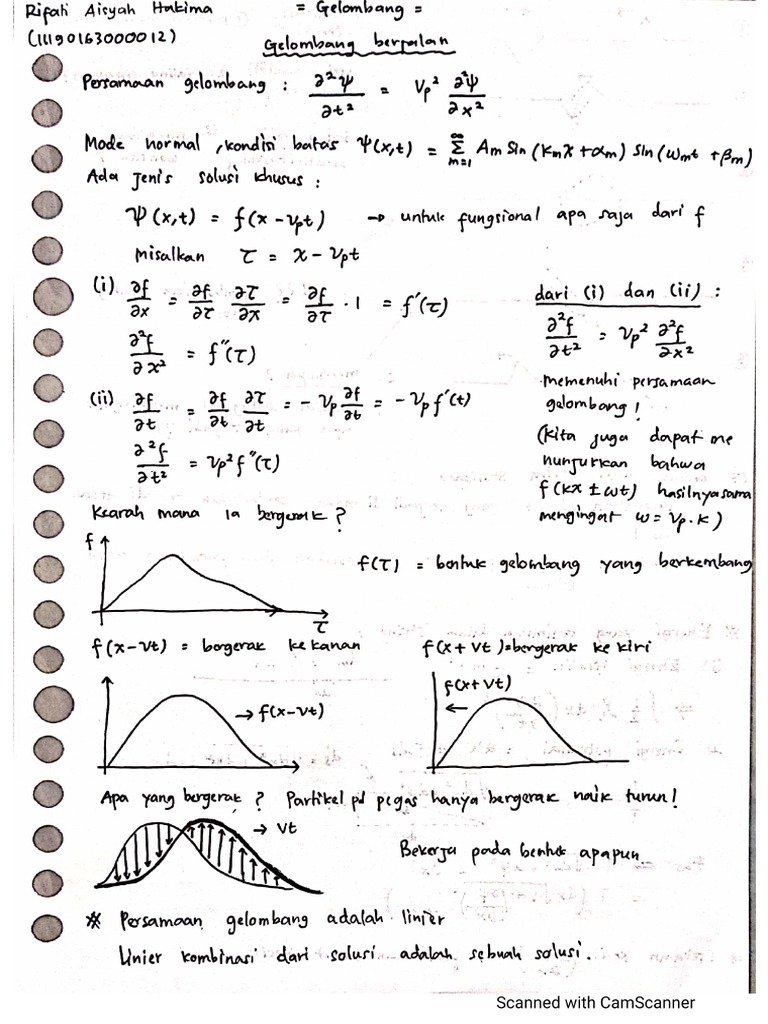 Rifah Aisyah Hakima = Gelombang =
(11190163000012)
Gelombang berjalan
Persamaan gelombang : ∂²Ψ/∂t² = Vp² ∂²Ψ/∂x²
Mode normal, kondisi batas Ψ(x,t) = Σ_{m=1}^{∞} Am Sin (kmx + αm) Sin (ωmt + βm)
Ada jenis solusi khusus :
Ψ(x,t) = f(x - vpt) → untuk fungsional apa saja dari f
misalkan τ = x - vpt
(i) ∂f/∂x = ∂f/∂τ ∂τ/∂x = ∂f/∂τ · 1 = f'(τ)
∂²f/∂x² = f''(τ)
(ii) ∂f/∂t = ∂f/∂t ∂τ/∂t = - vp ∂f/∂t = - vp f'(t)
∂²f/∂t² = vp² f''(τ)
dari (i) dan (ii) :
∂²f/∂t² = vp² ∂²f/∂x²
memenuhi persamaan
gelombang !
(kita juga dapat me
nunjukkan bahwa
f(kx ± ωt) hasilnya sama
mengingat ω = vp . k)
Kearah mana ia bergerak ?
f
τ
f(τ) = bentuk gelombang yang berkembang
f(x-vt) = bergerak ke kanan
f(x+vt) = bergerak ke kiri
→ f(x-vt)
f(x+vt)
←
Apa yang bergerak ? Partikel pd pegas hanya bergerak naik turun !
→ vt
Bekerja pada bentuk apapun.
* Persamaan gelombang adalah linier
Linier kombinasi dari solusi adalah sebuah solusi.
Scanned with CamScanner